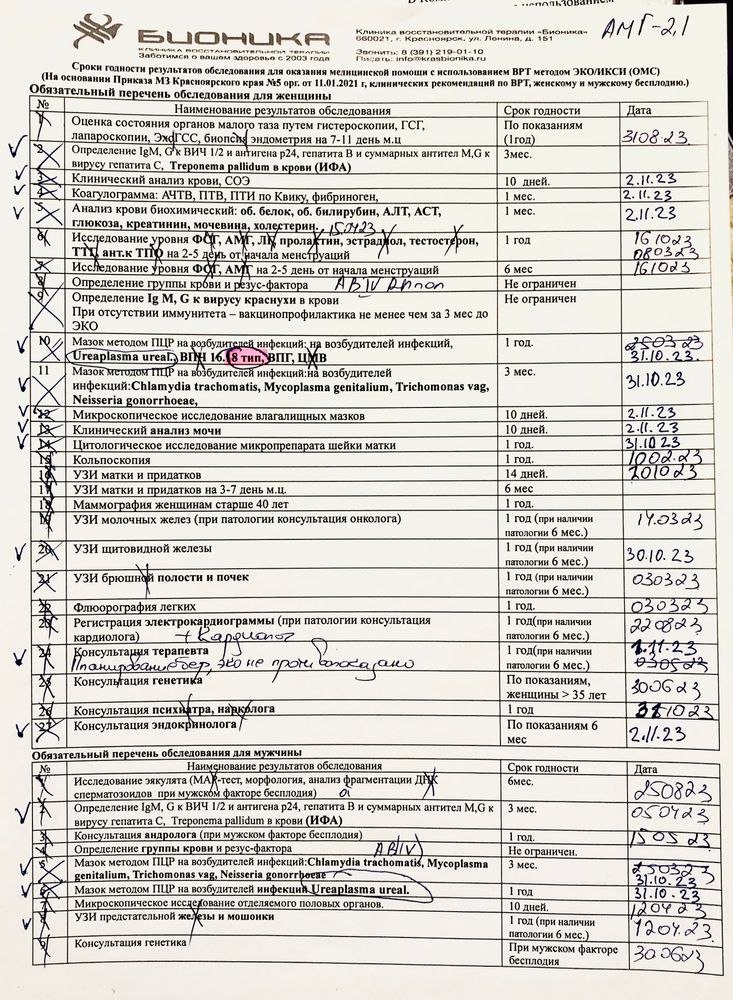 использованием
БИОНИКА
КЛИНИКА ВОССТАНОВИТЕЛЬНОЙ ТЕРАПИИ
Заботимся о вашем здоровье с 2003 года
Клиника восстановительной терапии «Бионика»
660021, г. Красноярск, ул. Ленина, д. 151
Звонить: 8 (391) 219-01-10
Писать: info@krasbionika.ru
АМГ-2,1
Сроки годности результатов обследования для оказания медицинской помощи с использованием ВРТ методом ЭКО/ИКСИ (ОМС)
(На основании Приказа МЗ Красноярского края №5 орг. от 11.01.2021 г, клинических рекомендаций по ВРТ, женскому и мужскому бесплодию.)
Обязательный перечень обследования для женщины
№ Наименование результатов обследования Срок годности Дата
1 Оценка состояния органов малого таза путем гистероскопии, ГСГ, По показаниям
лапароскопии, ЭхоГСС, биопсия эндометрия на 7-11 день м.ц (1год) 310823
2 Определение IgM, G к ВИЧ 1/2 и антигена p24, гепатита В и суммарных антител M,G к 3мес.
вирусу гепатита С, Treponema pallidum в крови (ИФА)
3 Клинический анализ крови, СОЭ 10 дней. 2.11.23
4 Коагулограмма: АЧТВ, ПТВ, ПТИ по Квику, фибриноген, 1 мес. 2.11.23
5 Анализ крови биохимический: об. белок, об. билирубин, АЛТ, АСТ, 1 мес. 2.11.23
глюкоза, креатинин, мочевина, холестерин.
6 Исследование уровня ФСГ, АМГ, ЛГ, пролактин, эстрадиол, тестостерон, 1 год 161023
ТТГ, ант.к ТПО на 2-5 день от начала менструаций 080323
7 Исследование уровня ФСГ, АМГ на 2-5 день от начала менструаций 6 мес 161023
8 Определение группы крови и резус-фактора AB IV Не ограничен
9 Определение Ig M, G к вирусу краснухи в крови Не ограничен
При отсутствии иммунитета – вакцинопрофилактика не менее чем за 3 мес до
ЭКО
10 Мазок методом ПЦР на возбудителей инфекций: на возбудителей инфекций, 1 год. 250323
Ureaplasma ureal., ВПЧ 16.18 тип, ВПГ, ЦМВ 31.10.23
11 Мазок методом ПЦР на возбудителей инфекций:на возбудителей 3 мес. 31.10.23
инфекций:Chlamydia trachomatis, Mycoplasma genitalium, Trichomonas vag,
Neisseria gonorrhoeae,
12 Микроскопическое исследование влагалищных мазков 10 дней. 2.11.23
13 Клинический анализ мочи 10 дней. 2.11.23
14 Цитологическое исследование микропрепарата шейки матки 1 год. 31.10 23
15 Кольпоскопия 1 год. 1002.23
16 УЗИ матки и придатков 14 дней. 201023
17 УЗИ матки и придатков на 3-7 день м.ц. 6 мес
18 Маммография женщинам старше 40 лет 1 год.
19 УЗИ молочных желез (при патологии консультация онколога) 1 год (при наличии 14.0323
патологии 6 мес.)
20 УЗИ щитовидной железы 1 год(при наличии 30.10.23
патологии 6 мес.)
21 УЗИ брюшной полости и почек 1 год(при наличии 030323
патологии 6 мес.)
22 Флюорография легких 1 год. 030323
23 Регистрация электрокардиограммы (при патологии консультация 1 год(при наличии 220823
кардиолога) + кардиолог патологии 6 мес.)
24 Консультация терапевта 1 год(при наличии 1.11.23
Планирование бер, эко не противопоказано патологии 6 мес.) 030523
25 Консультация генетика По показаниям, 300623
женщины > 35 лет
26 Консультация психиатра, нарколога 1 год 311023
27 Консультация эндокринолога По показаниям 6 2.11.23
мес
Обязательный перечень обследования для мужчины
№ Наименование результатов обследования Срок годности Дата
1 Исследование эякулята (МАР-тест, морфология, анализ фрагментации ДНК 6мес. 250823
сперматозоидов при мужском факторе бесплодия)
2 Определение IgM, G к ВИЧ 1/2 и антигена p24, гепатита В и суммарных антител M,G к 3 мес. 050423
вирусу гепатита С, Treponema pallidum в крови (ИФА)
3 Консультация андролога (при мужском факторе бесплодия) 1 год. 1505 23
4 Определение группы крови и резус-фактора AB(IV) Не ограничен.
5 Мазок методом ПЦР на возбудителей инфекций:Chlamydia trachomatis, Mycoplasma 3 мес. 250323
genitalium, Trichomonas vag, Neisseria gonorrhoeae 31.10.23
6 Мазок методом ПЦР на возбудителей инфекций Ureaplasma ureal. 1 год 31.10.23
7 Микроскопическое исследование отделяемого половых органов. 10 дней. 120423
8 УЗИ предстательной железы и мошонки 1 год (при наличии 1204.23
патологии 6 мес.)
9 Консультация генетика При мужском факторе 300623
бесплодия